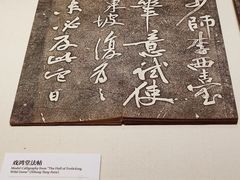 少師李西臺
筆意試使
東坡復為
未必及此
戏鸿堂法帖
Model Calligraphy from "The Hall of Frolicking
Wild Geese" (Xihong Tang Fatie)